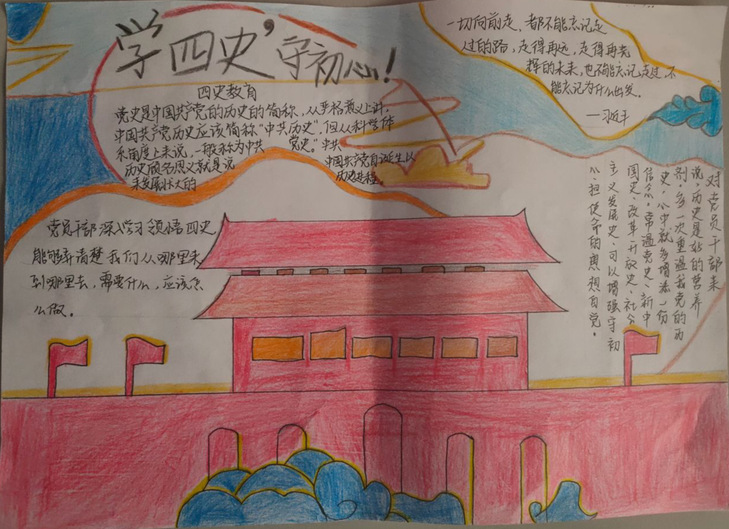 学四史，守初心！
四史教育
党史是中国共产党的历史的简称，从严格意义上讲，
中国共产党历史应该简称“中共历史”，但从科学体
系角度上来说，一般称为中共党史”。中共
历史顾名思义就是说中国共产党自诞生以
来发展壮大的历史进程。
一切向前走，都不能忘记走
过的路，走得再远、走得再光
辉的未来，也不能忘记走过，不
能忘记为什么出发。
党员干部深入学习领悟四史
能够弄清楚我们从哪里来
到哪里去，需要什么，应该怎
么做。
对党员干部来
说，历史是最好的营养
剂。多一次重温我党的历
史，心中就多增添一份
信念。常温党史、新中
国史、改革开放史、社会
主义发展史，可以增强守初
心担使命的思想自觉。